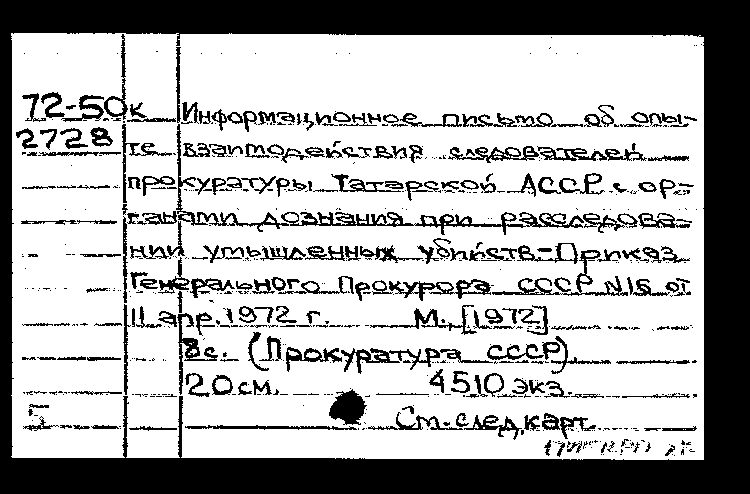 72-50к Информационное письмо об опы-
2728 те взаимодействия следователей
прокуратуры Татарской АССР с ор-
ганами дознания при расследова-
нии умышленных убийств-Приказ
Генерального Прокурора СССР №16 от
11 апр. 1972 г. М., [1972]
8с. (Прокуратура СССР).
20 см. 4510 экз.
5 Ст.-след, карт.